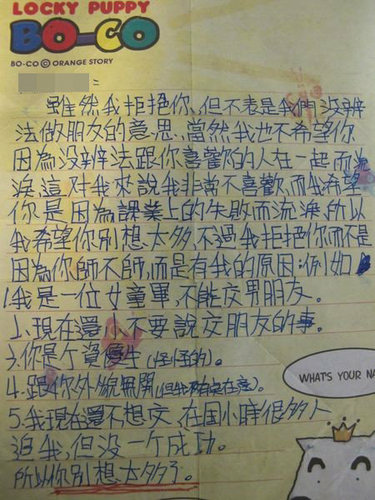 LOCKY PUPPY
BO-CO
BO-CO © ORANGE STORY
雖然我拒絕你、但不表是我們沒辨
法做朋友的意思、當然我也不希望你
因為沒辨法跟你喜歡的人在一起而流
淚這對我來說我非常不喜歡而我希望
你是因為課業上的失敗而流淚、所以
我希望你別想太多、不過我拒絕你而不是
因為你帥不帥,而是有我的原因:例如
1.我是一位女童軍、不能交男朋友。
2、現在還小不要說交朋友的事。
3.你是个資優生(怪怪的)。
4.跟你外貌無關(但我不在意)。
5.我現在還不想交,在国小時很多人
追我,但没一个成功。
所以你別想太多了。
WHAT'S YOUR NA